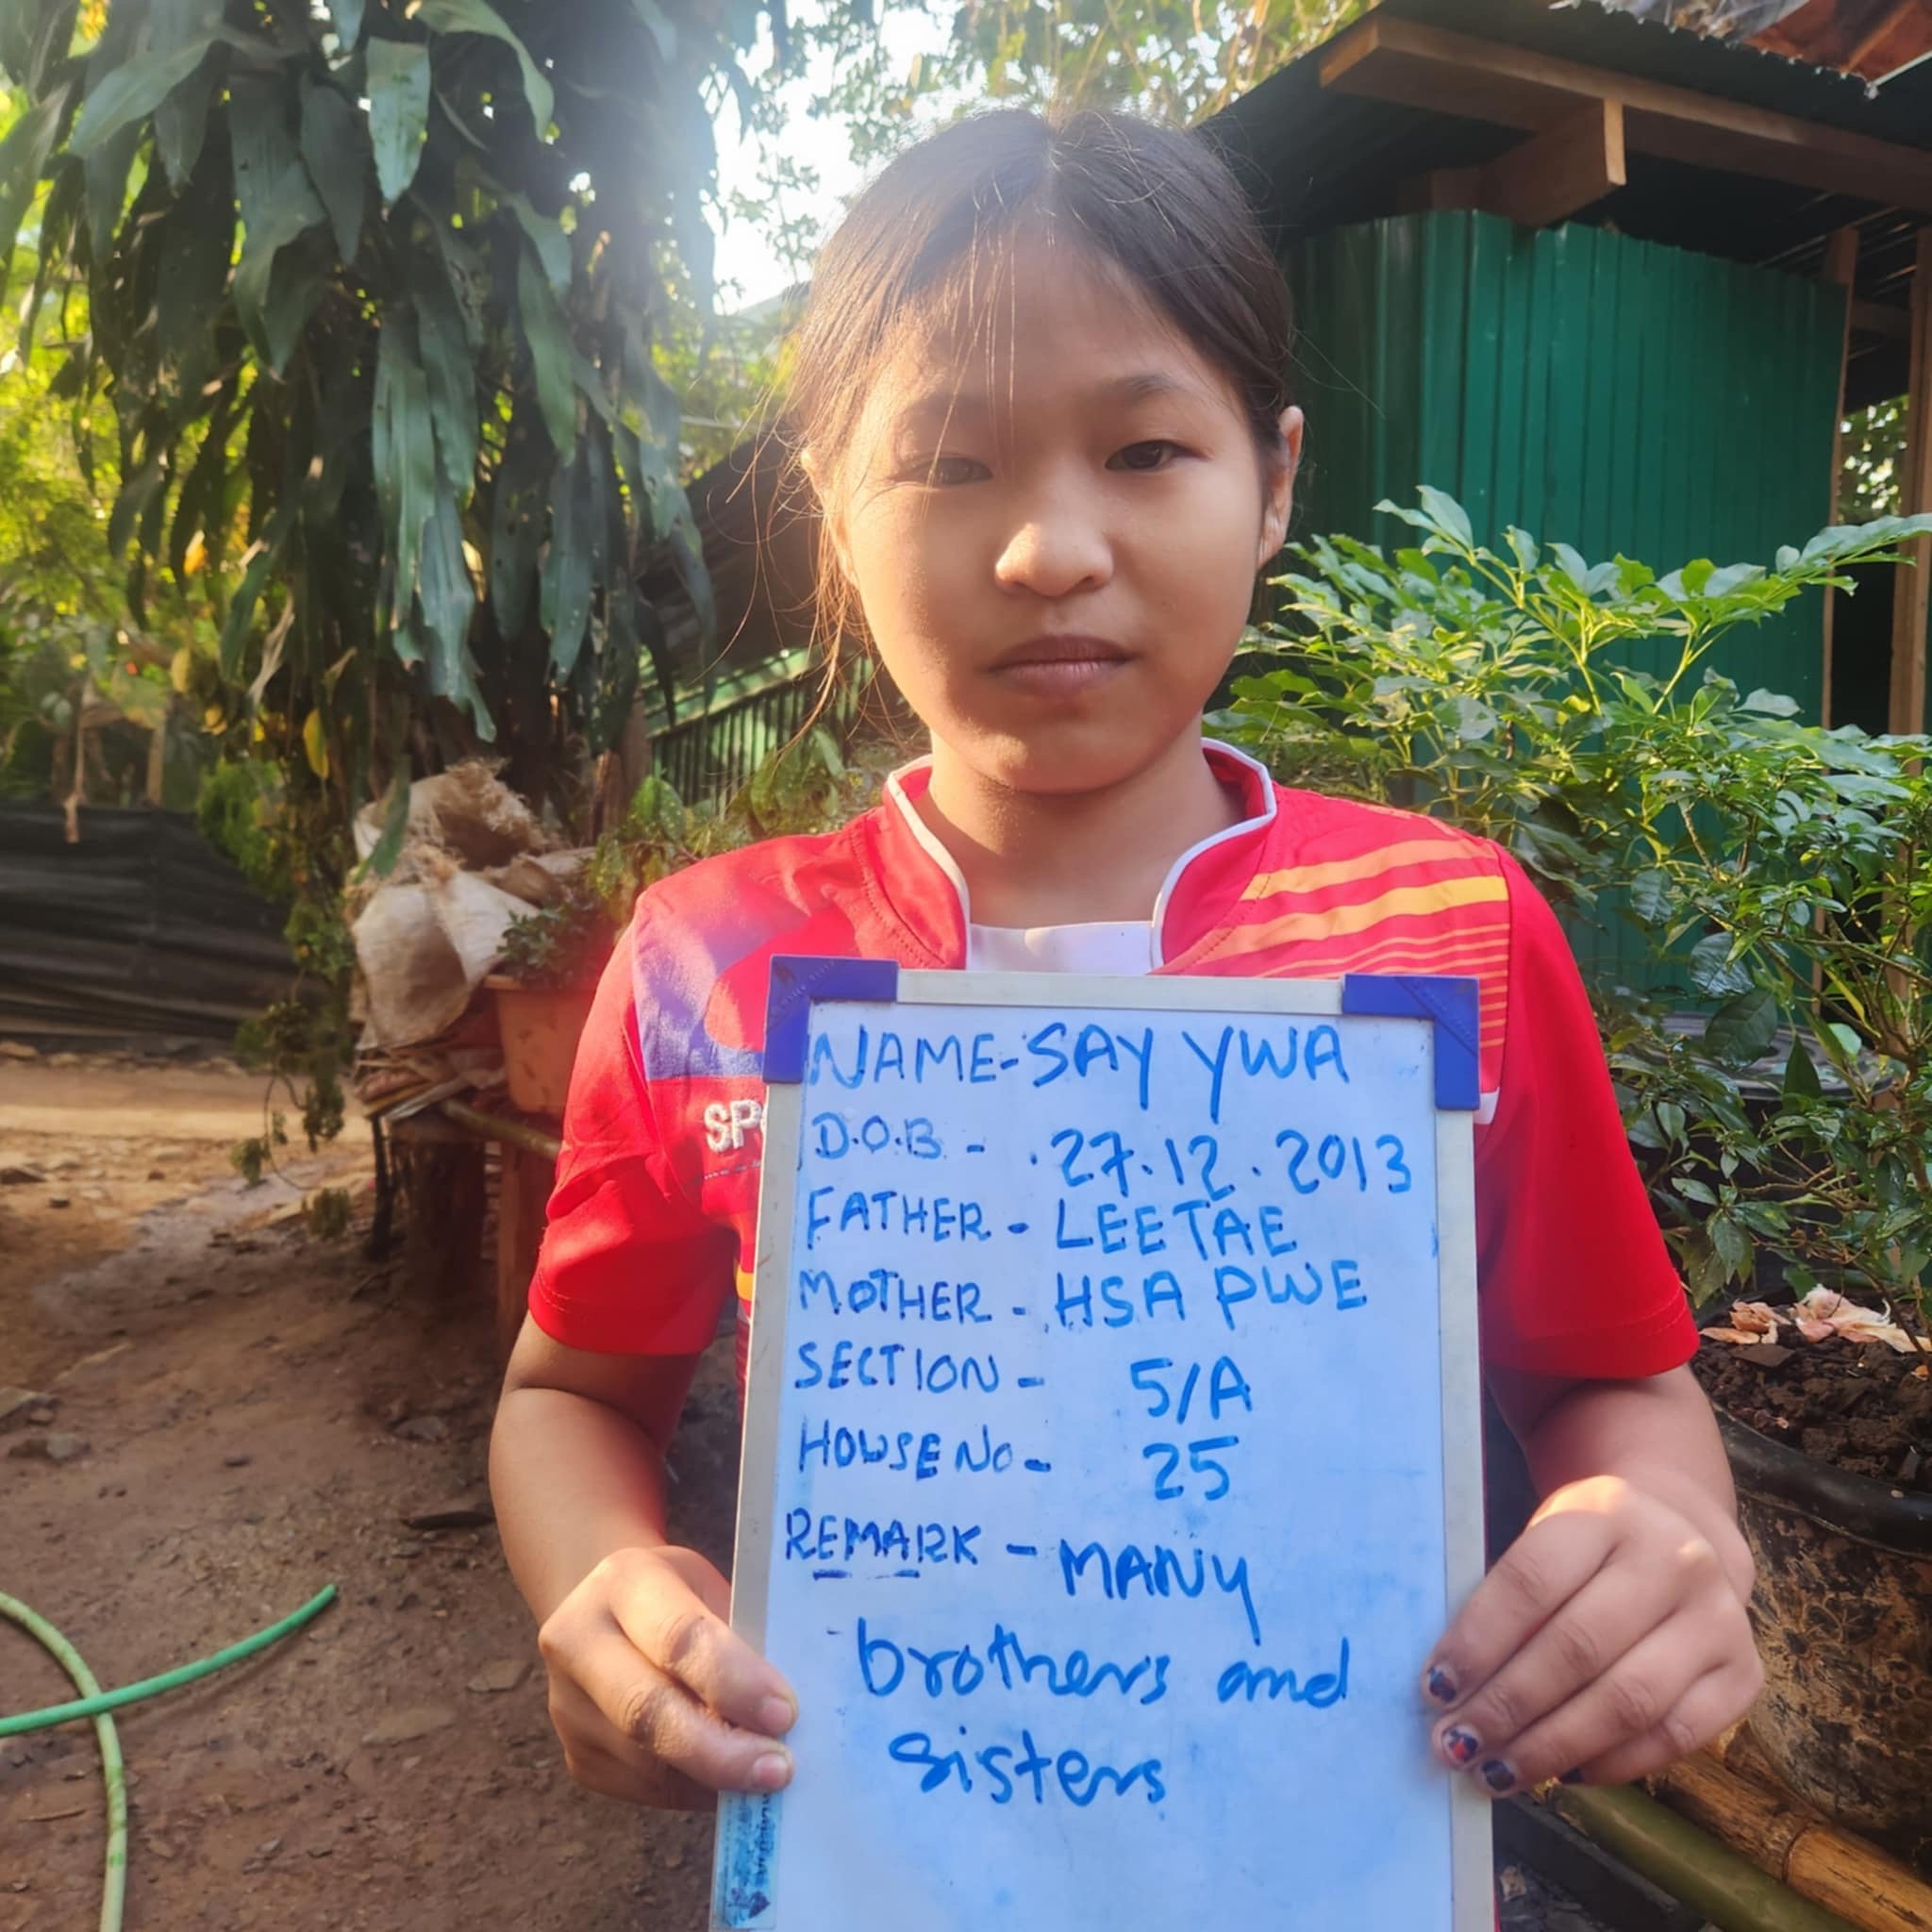 SP
NAME-SAY YWA
D.O.B - . 27.12.2013
FATHER - LEE TAE
MOTHER - HSA PWE
SECTION - 5/A
HOUSE NO - 25
REMARK - MANY
brothers and
sisters